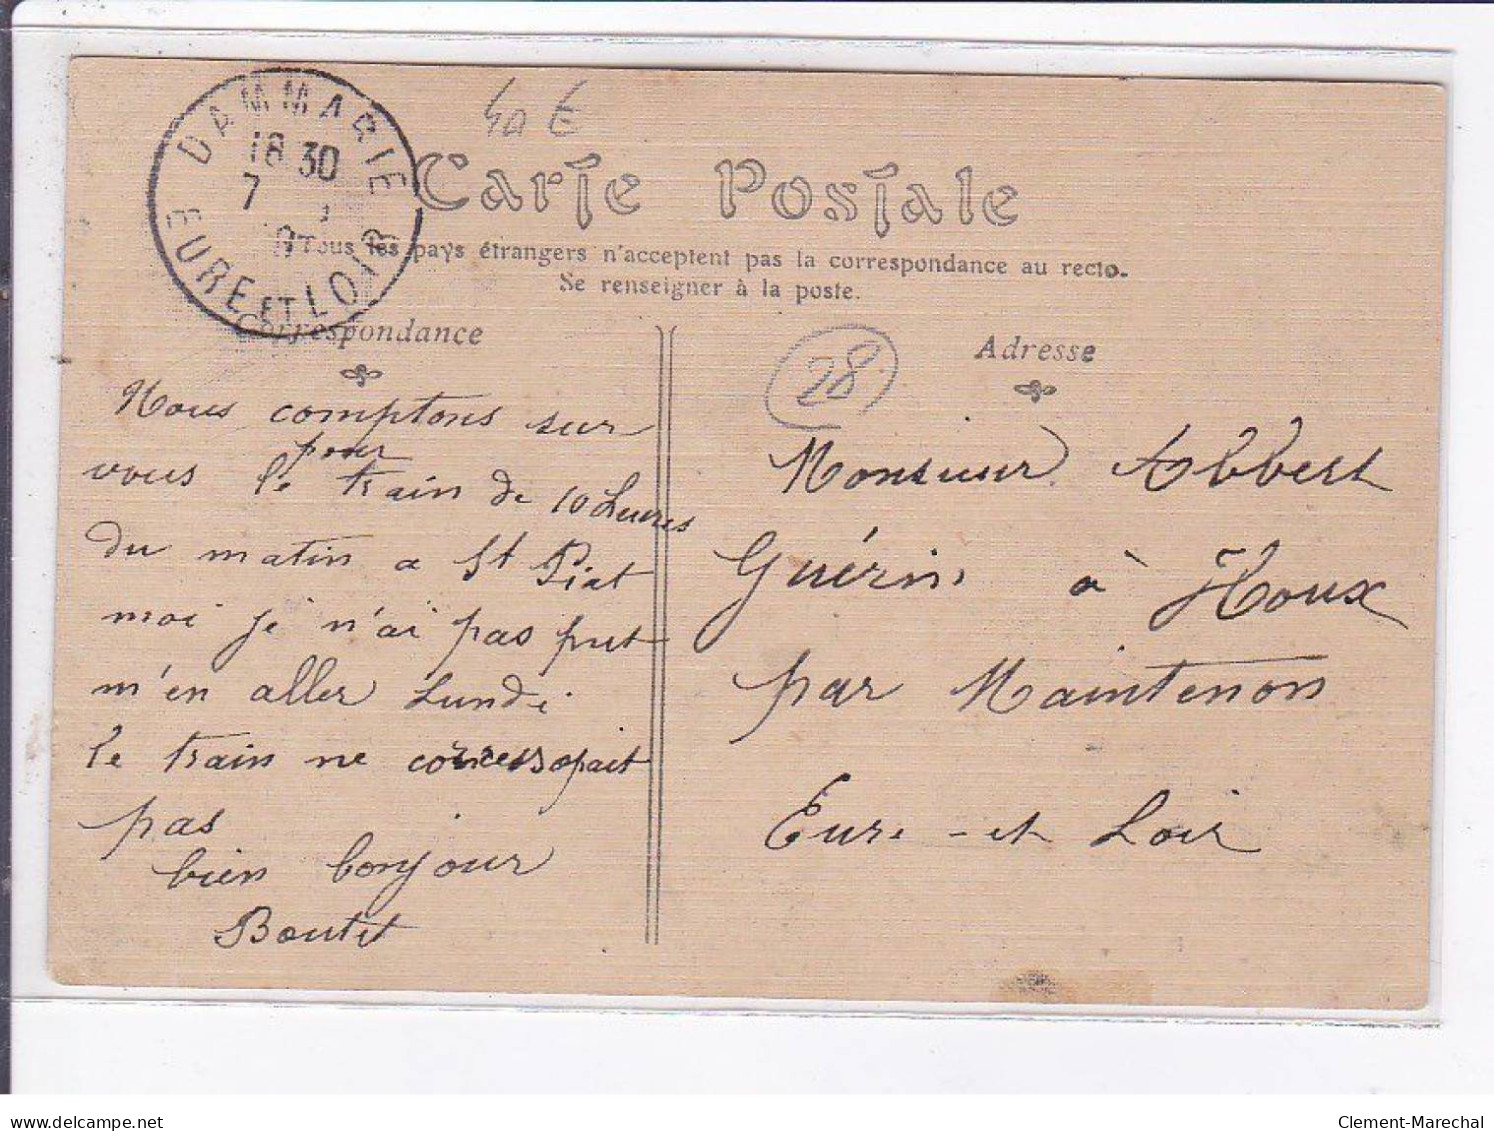 40 €
DAMMARIE
18 30
7
EURE ET LOIR
Carte Postale
Tous les pays étrangers n'acceptent pas la correspondance au recto.
Se renseigner à la poste.
Correspondance
Nous comptons sur
pour
vous le train de 10 heures
du matin a St Piat
moi je n'ai pas put
m'en aller Lundi
le train ne corressopait
pas
bien bonjour
Boutet
28
Adresse
Monsieur Abbert
Guérin à Houx
par Maintenon
Eure-et Loir
www.delcampe.net
Clement-Marechal